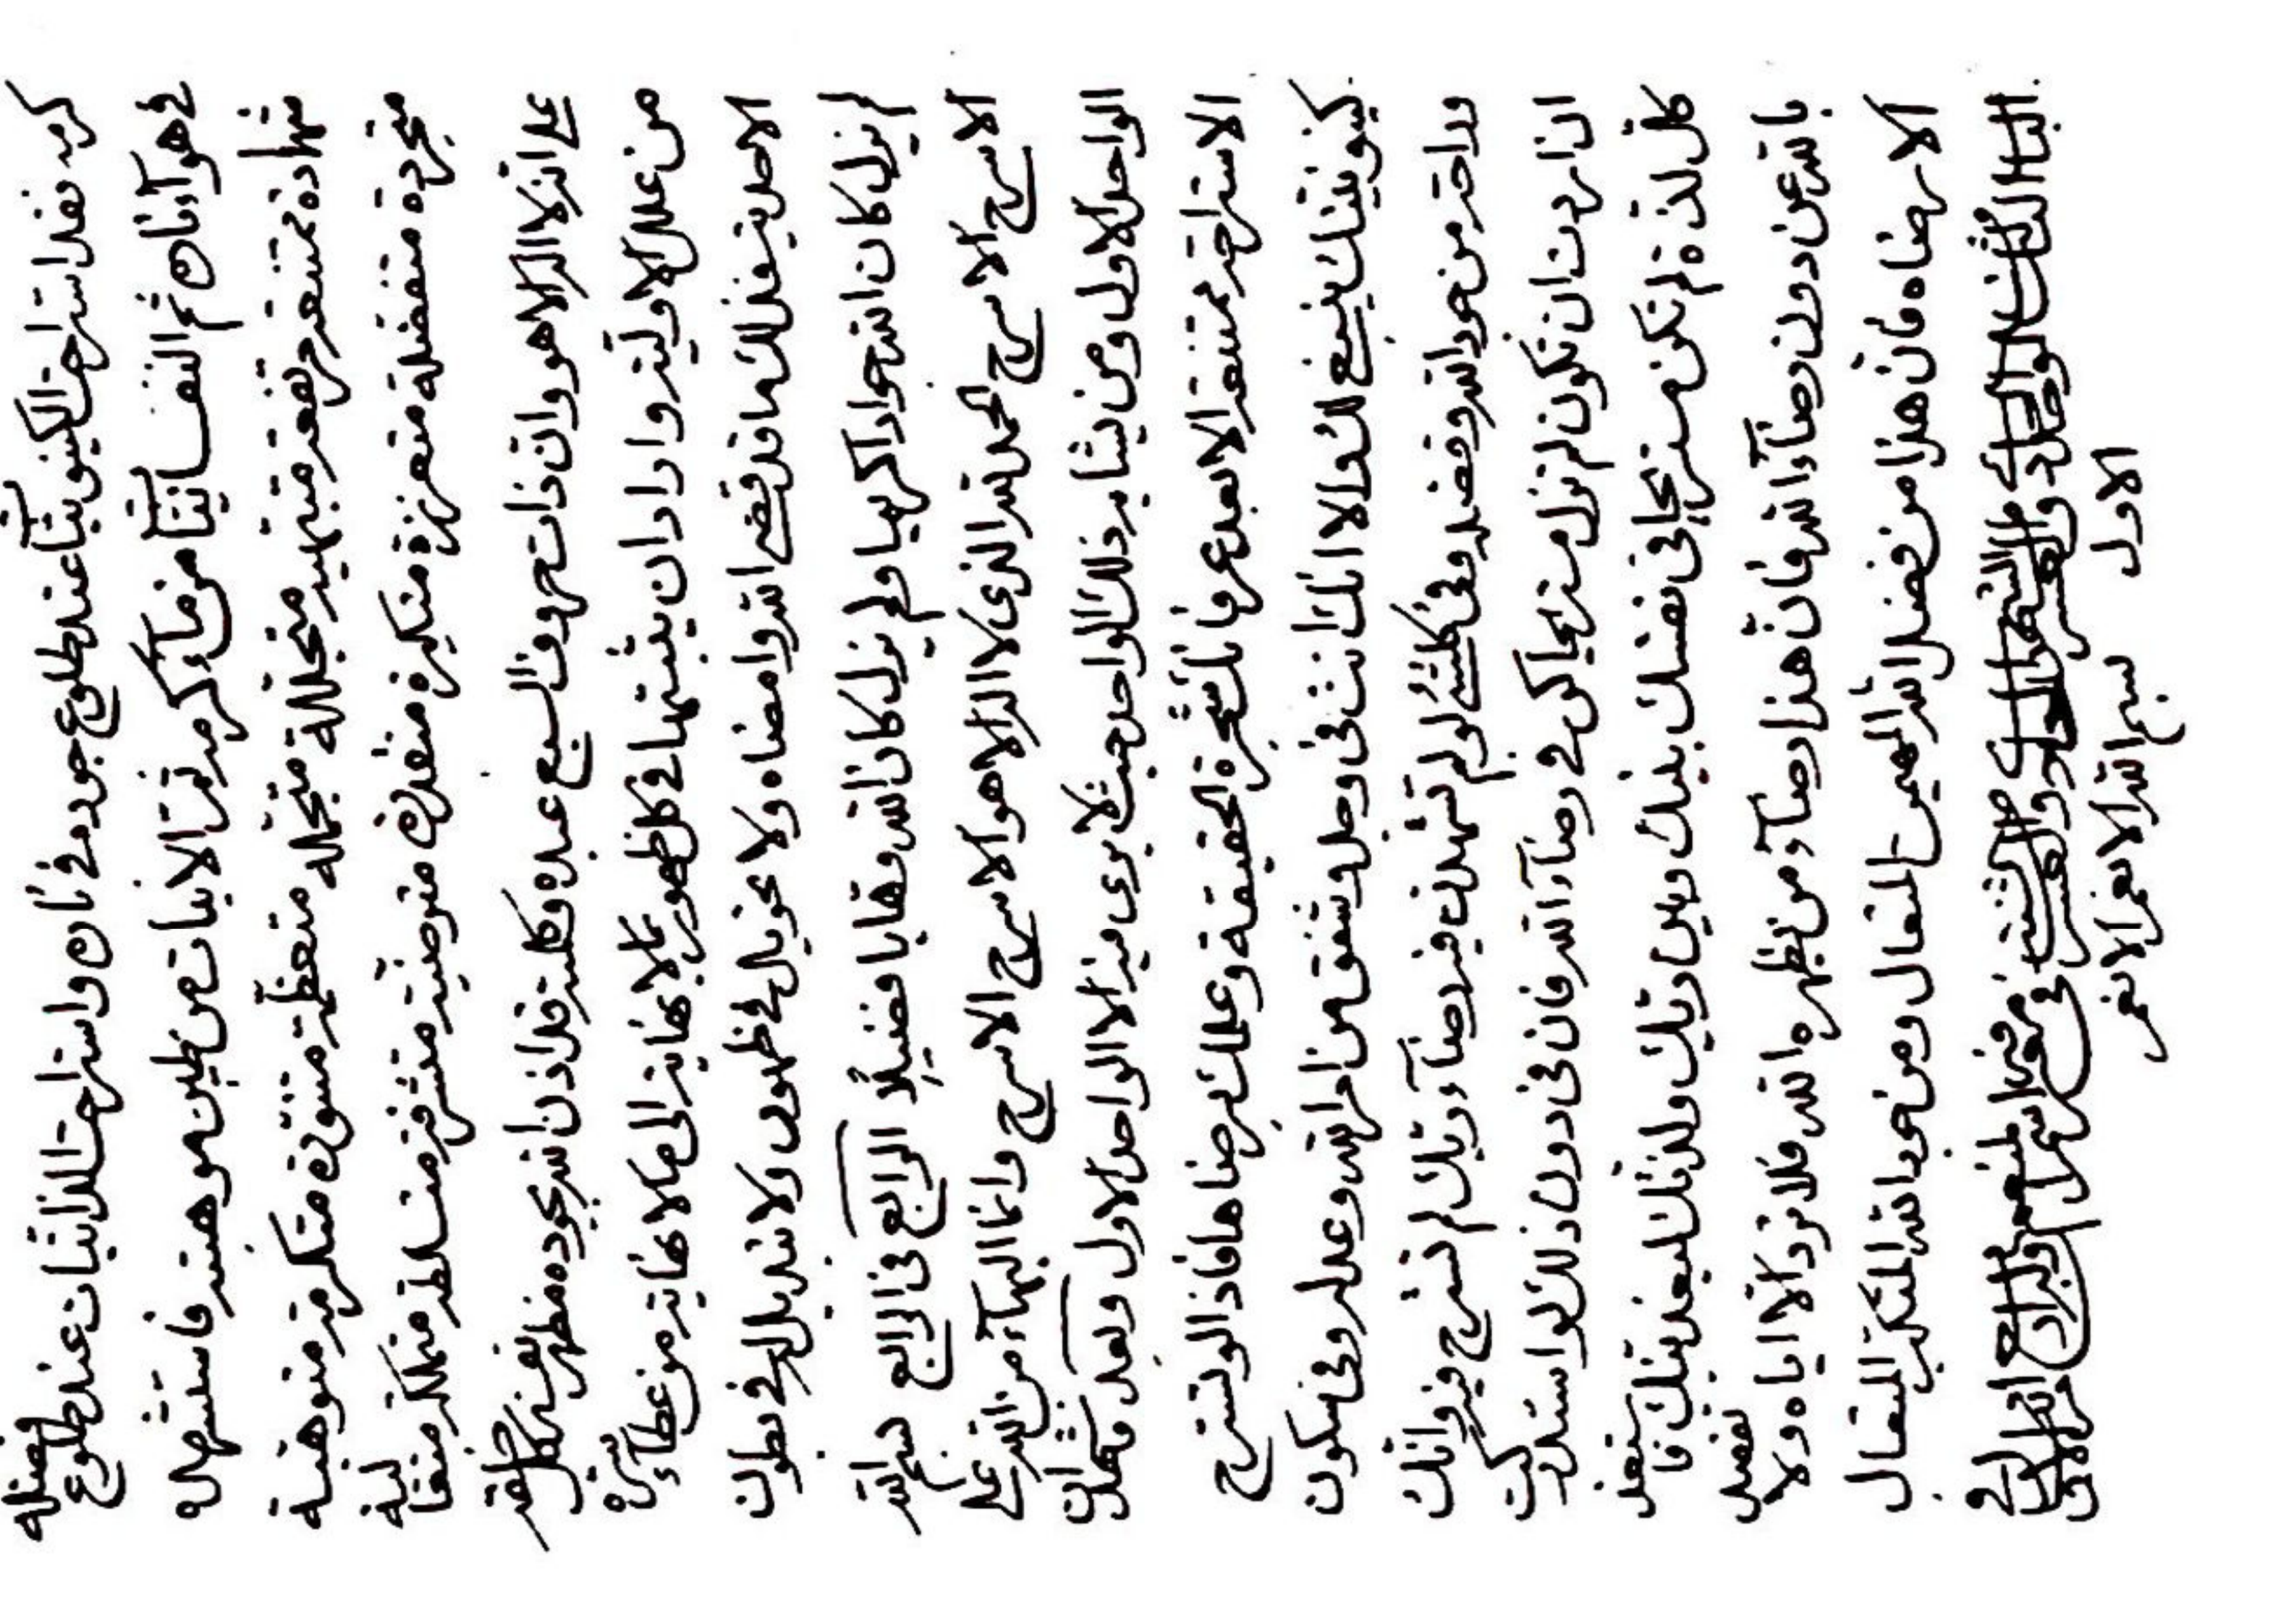 كرمه فقد استراحت الكينونيات عند طلوع جوده فى ذاك واستراحت الذاتيات عند طلوع فضله
فى هوآء ثم النفسانيات من مآء كرمه ثم الانيات من طين موهبته فاستشهد
شهادة ممتنعة مرتفعة مبتهية متجللة متجملة متعظمة متنورة متكرمة متوهبة
متجردة متفضلة متعززة متكبرة متقدرة مترضية متشرفة متسلطة متملكة متعالية
على انه لا اله الا هو وان ذات حروف السبع عبده وكلمته قد اذن الله بجوده مظهر نفسه لكل خلقه
من علل الاولية واراد ان يثبتها فى كل ظهور بما لا نهاية الى ما لا نهاية من عطاء
الاحدية فذلك ما قد قضى الله وامضاه ولا تحويل فى ظهور ولا تبديل له فى بطون
لم يزل كان الله جوادا كريما ولم يزل كان الله وهابا فضيلا الرابع فى الرابع بسم الله
الاسرج الاسرج الحمد لله الذى لا اله الا هو الاسرج الاسرج وانما البهآء من الله على
الواحد الاول ومن يشابه ذلك الواحد حيث لا يرى فيه الا الواحد الاول وبعد فاشهد ان
الاستراحة ممتنعة الا بعد عرفانك شجرة الحقيقة وعملك برضاها فاذا لو تسترح
كينونيتك ينبغى لك والا انك انت فى وجل وشفق من امر الله وعدله وفى سكون
وراحة من جود الله وفضله وفى كلشئ لو لم تشهدن فيه رضآء ربك لم تسترح فيه وانك
ان اردت ان تكون لم تزل مستريحا كن فى رضآء الله فان فى دون ذلك لو استدركت
كل لذة لم تكن مستريحا فى نفسك بينك وبين ربك ولذتك فاستعذ
بالله عن دون رضآء الله فان هذا رضآء من يظهره الله فلا ترد الا اياه ولا تفضل
الا رضاه فان هذا من فضل الله المهيمن المتعال ومن جود الله المتكبر المتعال
الباب الثالث الواحد والعشر فى معرفة اسم المنعم وله اربع مراتب الاول فى الاول
بسم الله الانعم الانعم